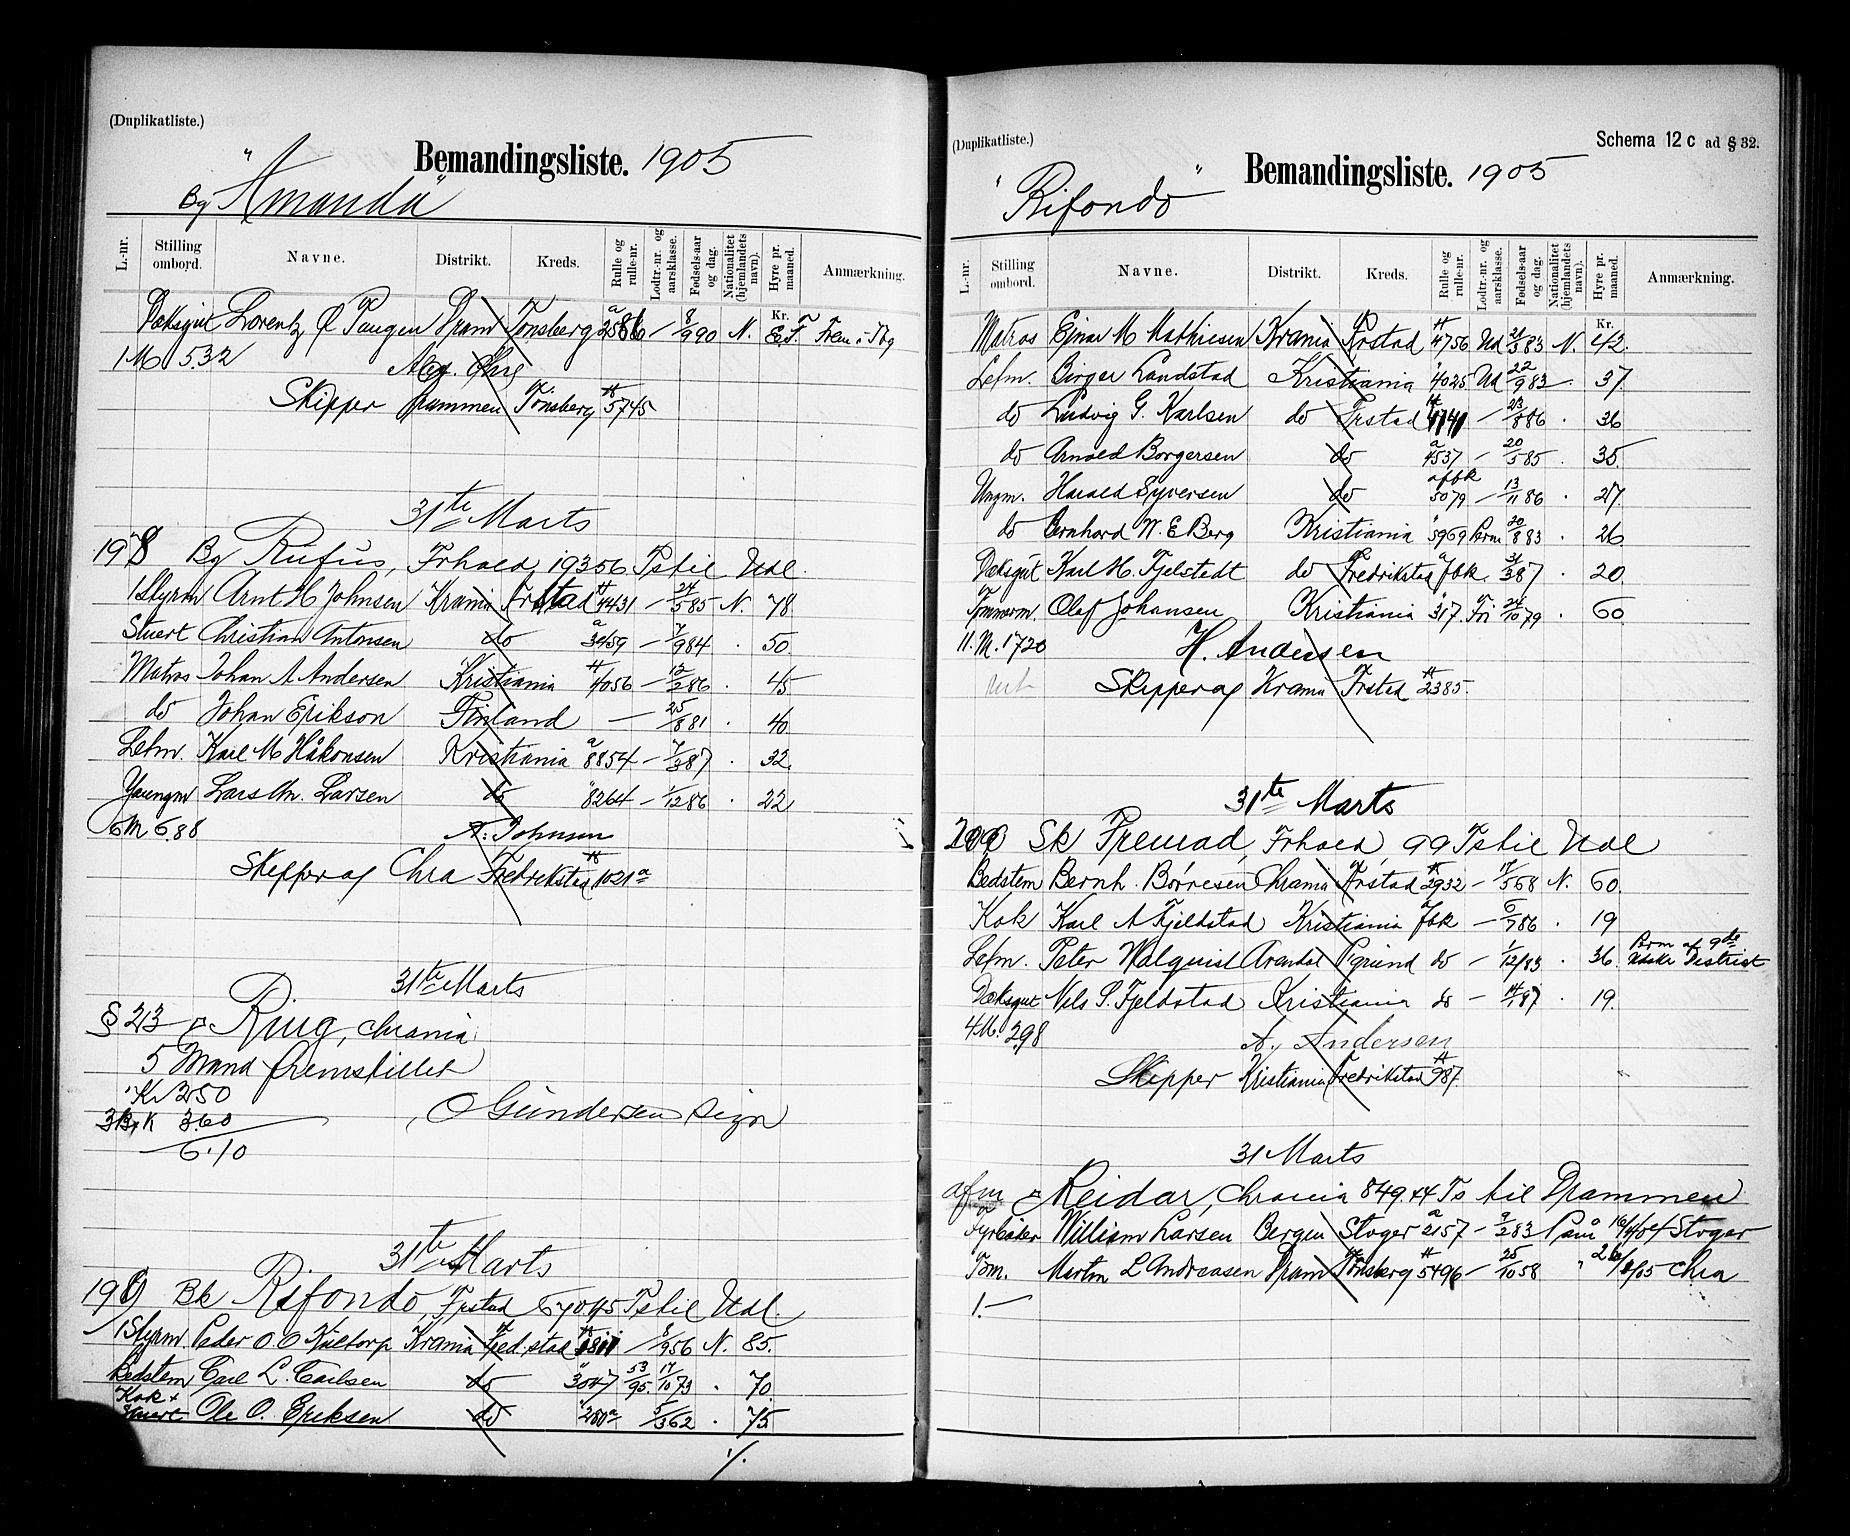 (Duplikatliste.)
Bemandingsliste. 1905
By "Amanda"
L.-nr. Stilling ombord. Navne. Distrikt. Kreds. Rulle og rulle-nr. Lodtr.-nr. og aarsklasse. Fødsels-aar og dag. Nationalitet (hjemlandets navn). Hyre pr. maaned. Anmærkning.
Kr.
Dæksgut Lorentz Dram Tønsberg a 2586 - 8/9 90 N.
1 M 5.32
Skipper Drammen Tønsberg A 5745
31te Marts
198 Bg Rufus, Frhald, 193.56 Ts til Udl.
1 Styrm Arnt H Johnsen Krania Frstad A 4431 - 24/5 85 N. 78
Stuert Christian Antonsen do a 3959 - 7/9 84 . 50.
Matros Johan A Andersen Kristiania A 4056 - 12/2 86 . 45
do Johan Erikson Finland - 25/8 81 . 40.
Letm. Karl M Håkonsen Kristiania a 8854 - 7/3 87 . 32.
Youngm Lars An. Larsen do " 8264 - 1/12 86 . 22
6 M 6.88 A. Johnsen
Skipper af Chra Fredrikstad A 1021a
31te Marts
§ 23 Ring, Chrania
5 Mand fremstillet
Kr 2.50
K 3.60 O Gundersen sign
6.10
31te Marts
199 Bk Rifondo, Frstad 670.45 Ts til Udl.
1 Styrm. Peder O O Krania Fred.stad A 1811 - 8/9 56 N. 85.
Bedstem Carl L. Carlsen do " 3047 53/95. 17/10 73 . 70.
Kok + Stuert Ole O. Eriksen do " 250a 5/3 62 . 75
1/.
(Duplikatliste.)
Schema 12 c ad § 32.
Bemandingsliste. 1905
"Rifondo"
L.-nr. Stilling ombord. Navne. Distrikt. Kreds. Rulle og rulle-nr. Lodtr.-nr. og aarsklasse. Fødsels-aar og dag. Nationalitet (hjemlandets navn). Hyre pr. maaned. Anmærkning.
Kr.
Matros Ejnar M Mathiesen Krania Frstad A 4756 Ud 21/3 83 N. 42.
Letm. Birger Landstad Kristiania " 4025 Ud 22/9 83 . 37.
do Ludvig G. Karlsen do Frstad A 4141 - 23/8 86 . 36
do Arnold Borgersen do a 4537 - 20/5 85 . 35.
Ungm. Harald Syversen do afbk 5079 - 13/11 86 . 27.
do Bernhard W. E. Berg Kristiania " 5969 20/8 83 . 26
Dæksgut Karl M. Fjelstedt do Fredrikstad a fbk 31/3 87 . 20
Tømmerm. Olaf Johansen Kristiania " 317. Fri 24/10 79 . 60
11. M. 17.20 H. Andersen
Skipper af Krania Frstad A 2385.
31te Marts
200 Sk Fremad, Frhald 99 Ts til Udl
Bedstem Bernh. Børresen Chrania Frstad A 2932 - 17/5 68 N. 60.
Kok Karl A Fjeldstad Kristiania fbk - 6/7 86 . 19
Letm. Peter Halquist Arendal Pgrund do - 1/12 83 . 36. District
Dæksgut Nels P. Fjeldstad Kristiania do - 14/1 87 . 19.
4 M. 2.98 A. Andersen
Skipper Kristiania Fredrikstad A 987.
31 Marts
afm Reidar, Chrania 849.44 Ts til Drammen
Fyrbøder William Larsen Bergen Stvger a 2157 - 9/2 83 16/4 04 Stvger
Tøm. Martin L Andreasen Dram Tønsberg A 5496 - 25/10 58 " Chra
1.-